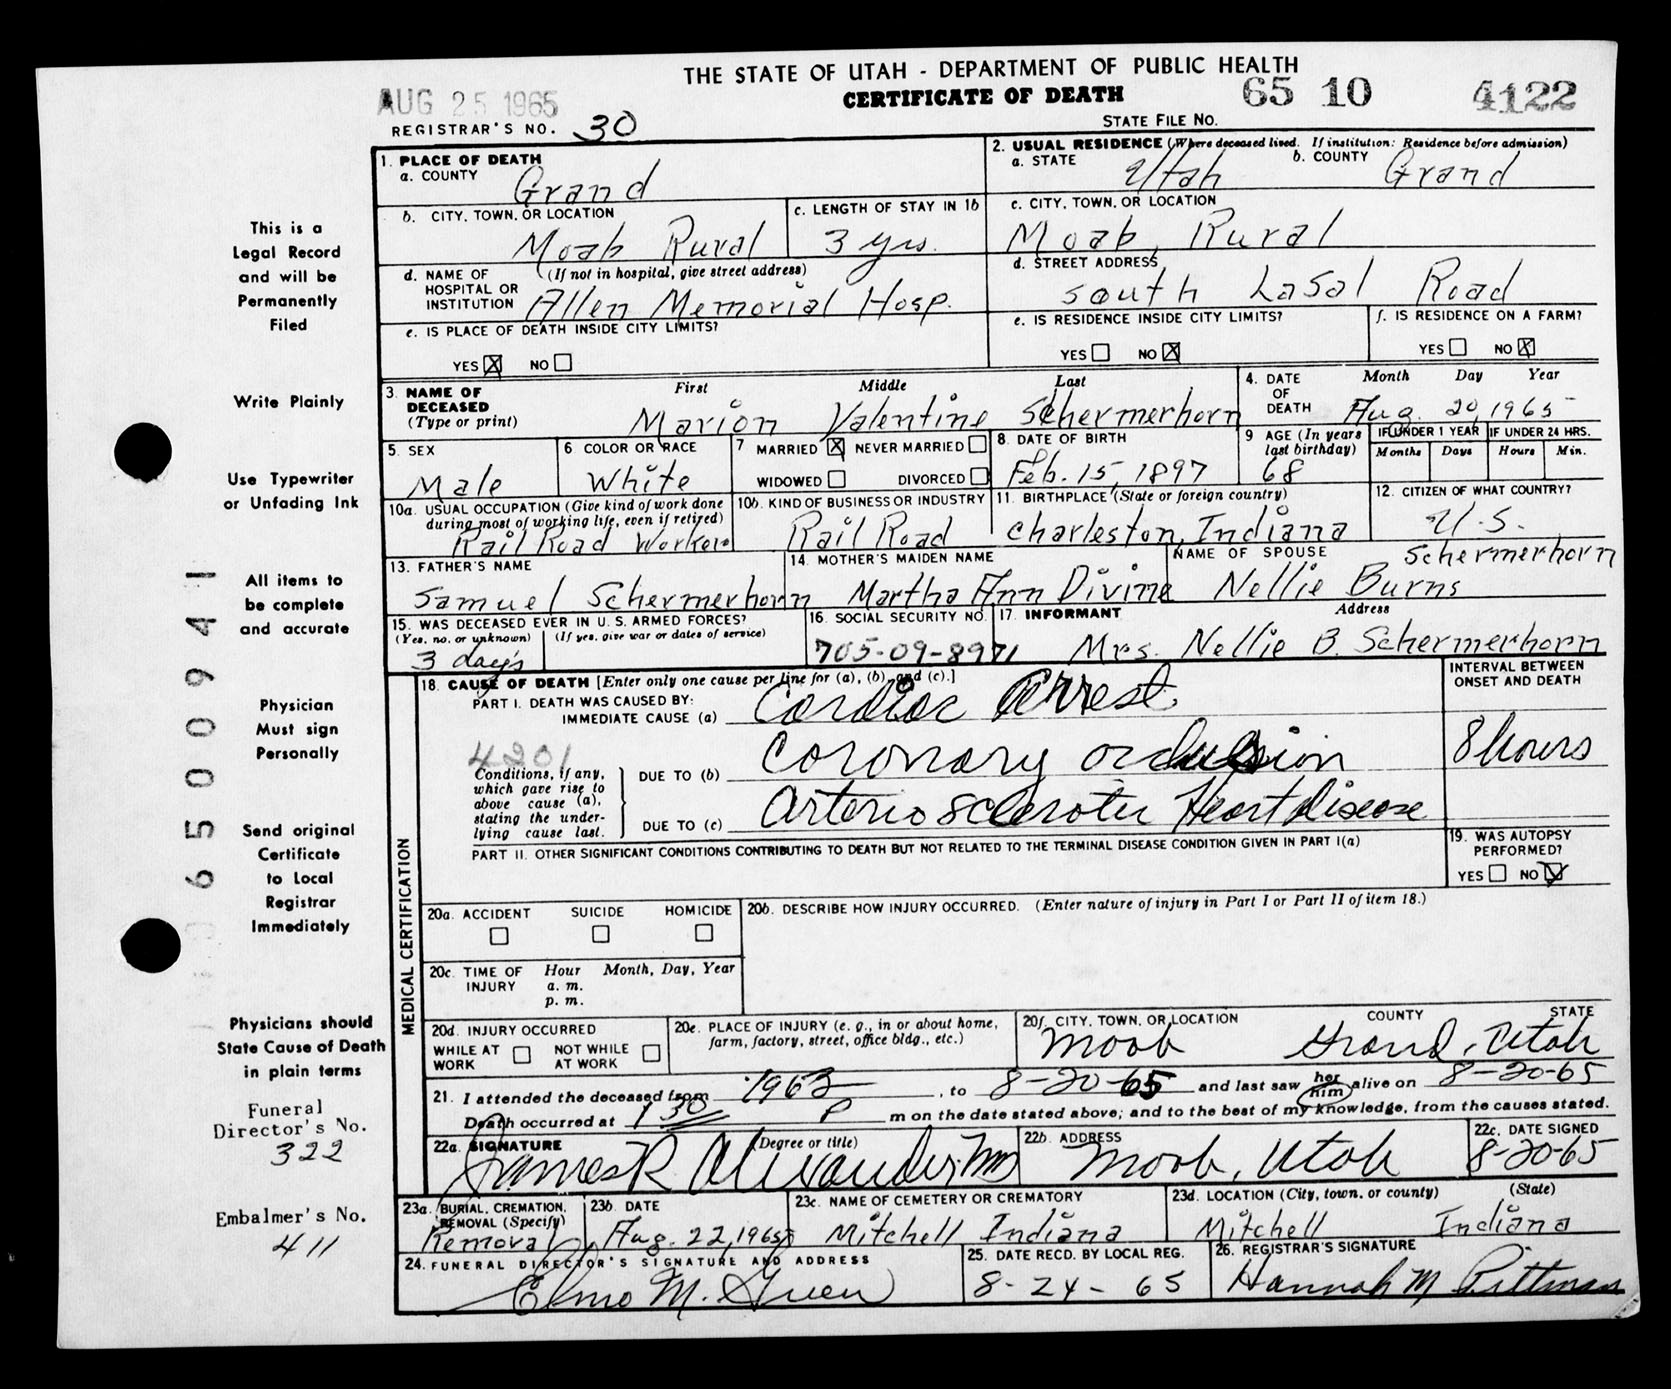 THE STATE OF UTAH - DEPARTMENT OF PUBLIC HEALTH
CERTIFICATE OF DEATH
AUG 25 1965
65 10 4122
REGISTRAR'S NO. 30
STATE FILE NO.
1. PLACE OF DEATH
a. COUNTY
Grand
2. USUAL RESIDENCE (Where deceased lived. If institution: Residence before admission)
a. STATE
Utah
b. COUNTY
Grand
b. CITY, TOWN, OR LOCATION
Moab Rural
c. LENGTH OF STAY IN 1b
3 yrs.
c. CITY, TOWN, OR LOCATION
Moab, Rural
d. NAME OF HOSPITAL OR INSTITUTION
(If not in hospital, give street address)
Allen Memorial Hosp.
d. STREET ADDRESS
South LaSal Road
e. IS PLACE OF DEATH INSIDE CITY LIMITS?
YES X NO
e. IS RESIDENCE INSIDE CITY LIMITS?
YES NO X
f. IS RESIDENCE ON A FARM?
YES NO X
3. NAME OF DECEASED
(Type or print)
First Middle Last
Marion Valentine Schermerhorn
4. DATE OF DEATH
Month Day Year
Aug. 20, 1965
5. SEX
Male
6 COLOR OR RACE
White
7 MARRIED X NEVER MARRIED
WIDOWED DIVORCED
8. DATE OF BIRTH
Feb. 15, 1897
9 AGE (In years last birthday)
68
IF UNDER 1 YEAR
Months Days
IF UNDER 24 HRS.
Hours Min.
10a. USUAL OCCUPATION (Give kind of work done during most of working life, even if retired)
Rail Road Worker
10b. KIND OF BUSINESS OR INDUSTRY
Rail Road
11. BIRTHPLACE (State or foreign country)
Charleston, Indiana
12. CITIZEN OF WHAT COUNTRY?
U.S.
13. FATHER'S NAME
Samuel Schermerhorn
14. MOTHER'S MAIDEN NAME
Martha Ann Divine
NAME OF SPOUSE
Nellie Burns Schermerhorn
15. WAS DECEASED EVER IN U. S. ARMED FORCES?
(Yes, no, or unknown) (If yes, give war or dates of service)
3 days
16. SOCIAL SECURITY NO.
705-09-8971
17. INFORMANT Address
Mrs. Nellie B. Schermerhorn
18. CAUSE OF DEATH [Enter only one cause per line for (a), (b), and (c).]
PART I. DEATH WAS CAUSED BY:
IMMEDIATE CAUSE (a)
Cardiac Arrest
4201
Conditions, if any, which gave rise to above cause (a), stating the underlying cause last.
DUE TO (b)
Coronary occlusion
DUE TO (c)
Arteriosclerotic Heart disease
INTERVAL BETWEEN ONSET AND DEATH
8 hours
PART II. OTHER SIGNIFICANT CONDITIONS CONTRIBUTING TO DEATH BUT NOT RELATED TO THE TERMINAL DISEASE CONDITION GIVEN IN PART I(a)
19. WAS AUTOPSY PERFORMED?
YES NO
20a. ACCIDENT SUICIDE HOMICIDE
20b. DESCRIBE HOW INJURY OCCURRED. (Enter nature of injury in Part I or Part II of item 18.)
20c. TIME OF INJURY
Hour Month, Day, Year
a. m.
p. m.
20d. INJURY OCCURRED
WHILE AT WORK NOT WHILE AT WORK
20e. PLACE OF INJURY (e. g., in or about home, farm, factory, street, office bldg., etc.)
20f. CITY, TOWN, OR LOCATION COUNTY STATE
Moab Grand, Utah
21. I attended the deceased from 1963, to 8-20-65 and last saw her him alive on 8-20-65
Death occurred at 1 30 P m on the date stated above; and to the best of my knowledge, from the causes stated.
22a. SIGNATURE (Degree or title)
James R Alexander MD
22b. ADDRESS
Moab, Utah
22c. DATE SIGNED
8-20-65
23a. BURIAL, CREMATION, REMOVAL (Specify)
Removal
23b. DATE
Aug. 22, 1965
23c. NAME OF CEMETERY OR CREMATORY
Mitchell Indiana
23d. LOCATION (City, town, or county) (State)
Mitchell Indiana
24. FUNERAL DIRECTOR'S SIGNATURE AND ADDRESS
Elmo M.
25. DATE RECD. BY LOCAL REG.
8-24-65
26. REGISTRAR'S SIGNATURE
Hannah M Pittman
MEDICAL CERTIFICATION
This is a
Legal Record
and will be
Permanently
Filed
Write Plainly
Use Typewriter
or Unfading Ink
All items to
be complete
and accurate
Physician
Must sign
Personally
Send original
Certificate
to Local
Registrar
Immediately
Physicians should
State Cause of Death
in plain terms
Funeral
Director's No.
322
Embalmer's No.
411
65 00941